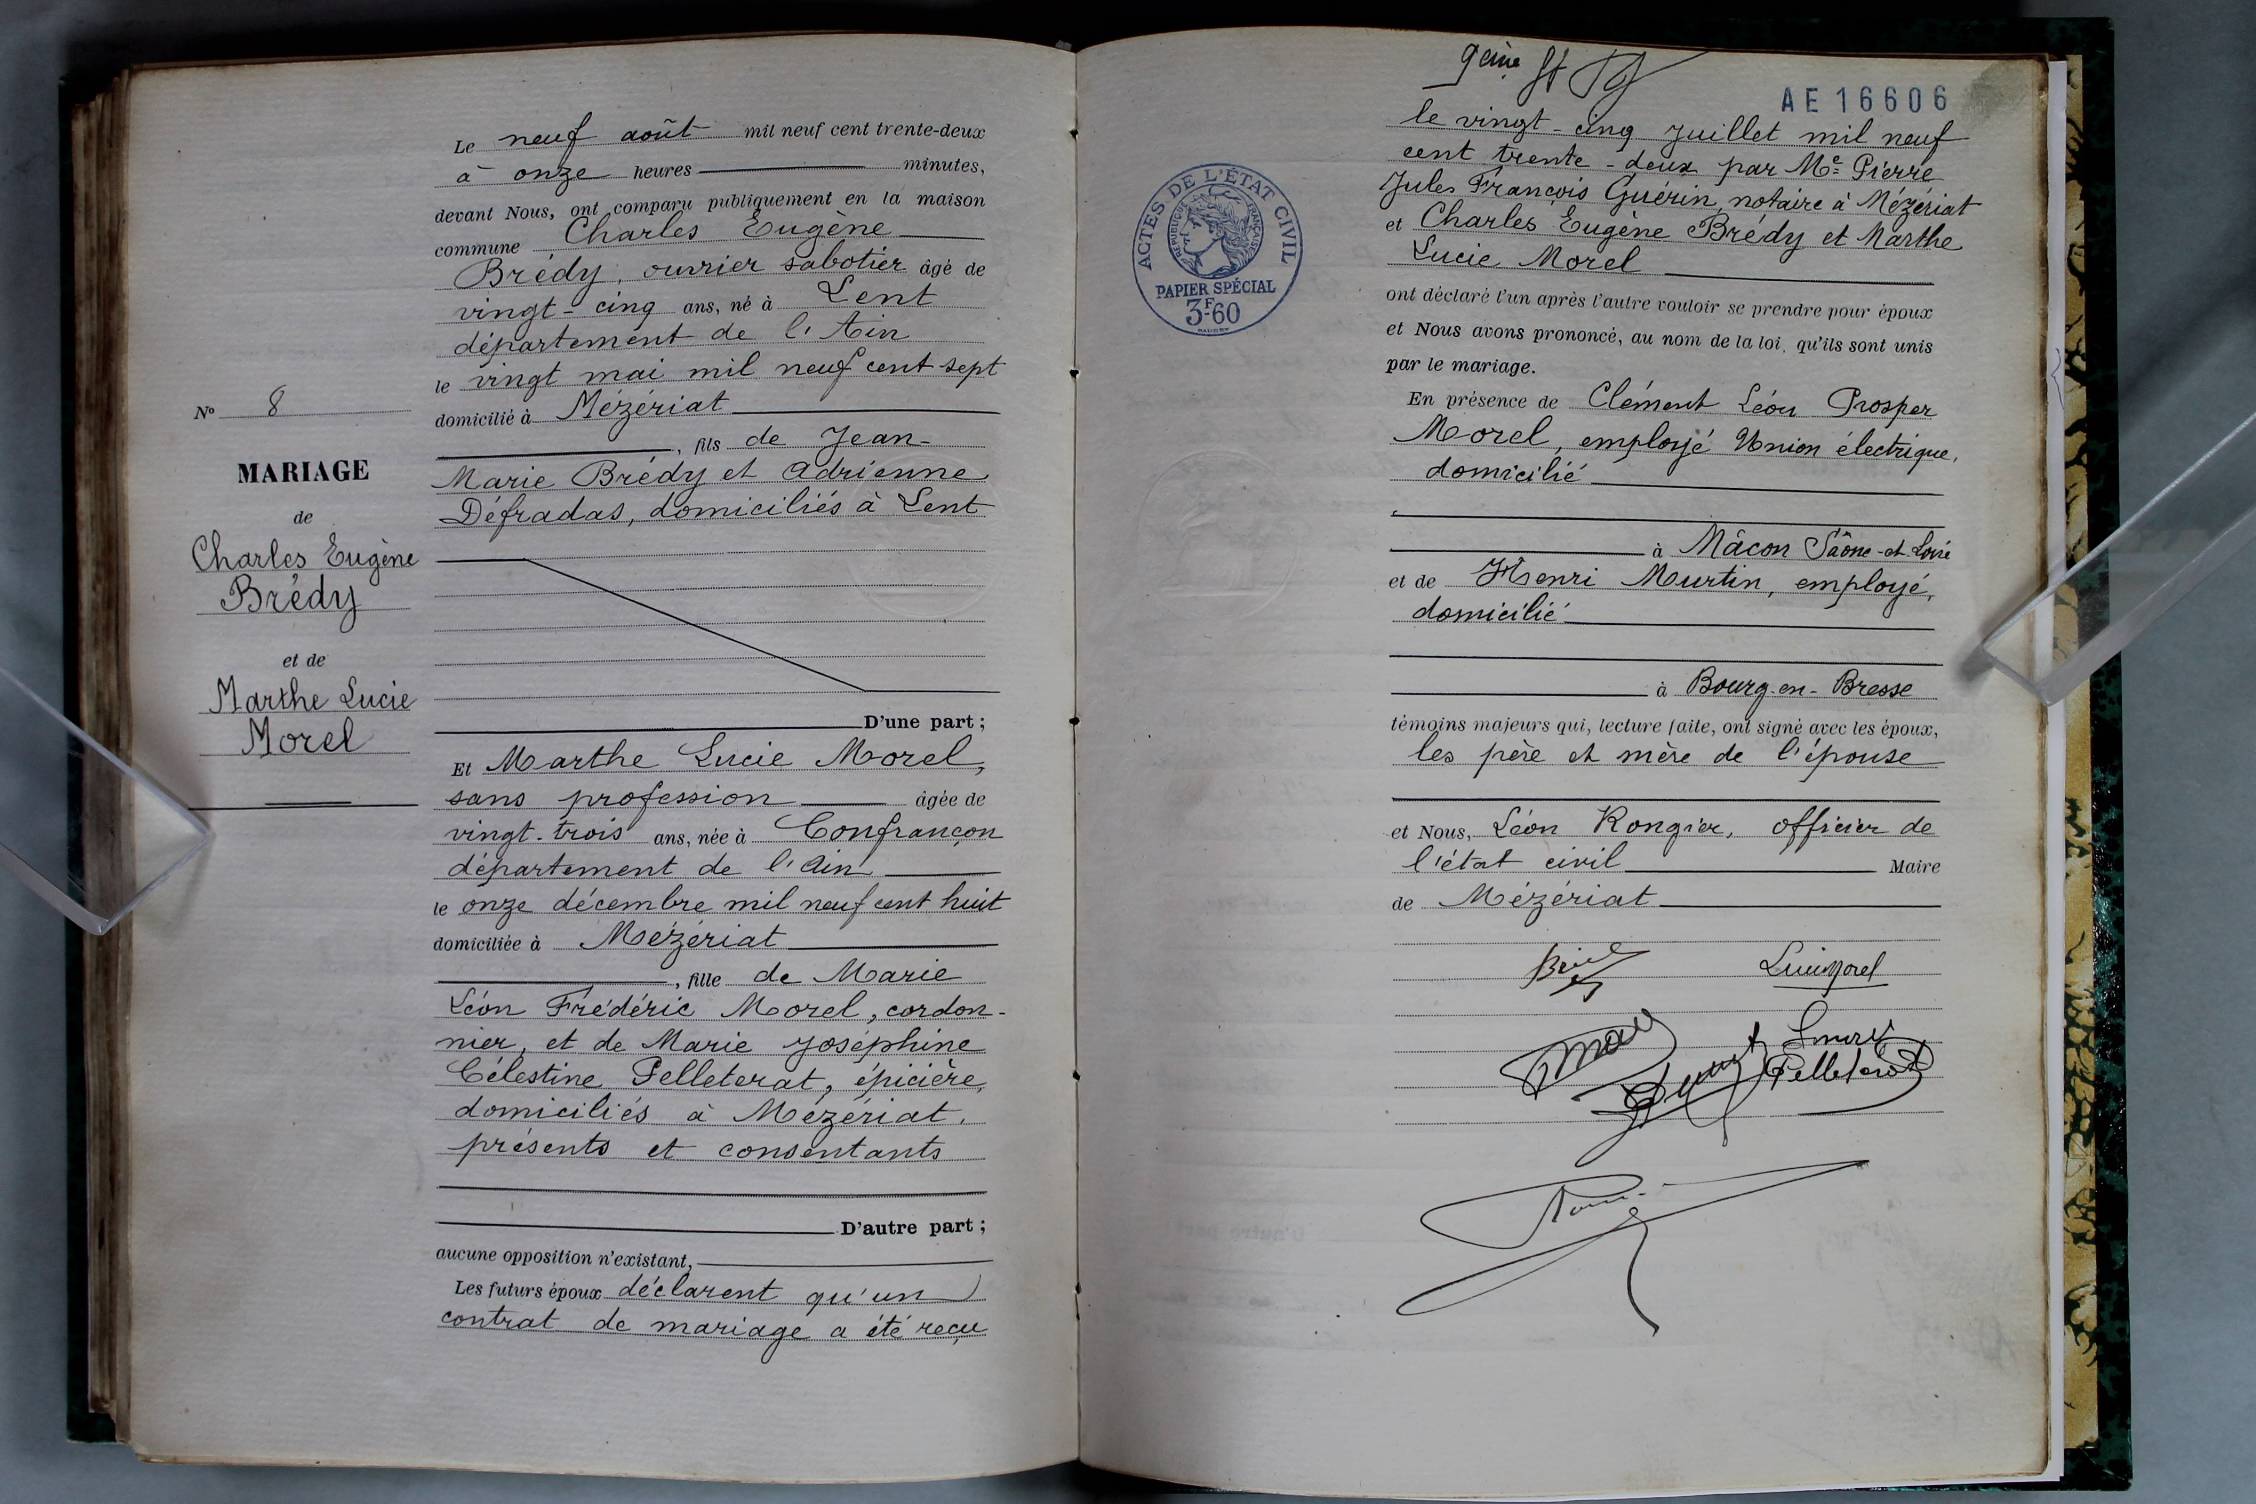 N° 8
MARIAGE
de
Charles Eugène
Brédy
et de
Marthe Lucie
Morel
Le neuf août mil neuf cent trente-deux
à onze heures minutes,
devant Nous, ont comparu publiquement en la maison
commune Charles Eugène
Brédy, ouvrier sabotier âgé de
vingt-cinq ans, né à Lent
département de l'Ain
le vingt mai mil neuf cent sept
domicilié à Mézériat
, fils de Jean-
Marie Brédy et Adrienne
Défradas, domiciliés à Lent
D'une part ;
Et Marthe Lucie Morel,
sans profession âgée de
vingt-trois ans, née à Confrançon
département de l'Ain
le onze décembre mil neuf cent huit
domiciliée à Mézériat
, fille de Marie
Léon Frédéric Morel, cordon-
nier, et de Marie Joséphine
Célestine Pelleterat, épicière,
domiciliés à Mézériat,
présents et consentants
D'autre part ;
aucune opposition n'existant,
Les futurs époux déclarent qu'un
contrat de mariage a été reçu
9ème
AE 16606
ACTES DE L'ÉTAT CIVIL
RÉPUBLIQUE FRANÇAISE
PAPIER SPÉCIAL
3F.60
le vingt-cinq juillet mil neuf
cent trente-deux par Me Pierre
Jules François Guérin, notaire à Mézériat
et Charles Eugène Brédy et Marthe
Lucie Morel
ont déclaré l'un après l'autre vouloir se prendre pour époux
et Nous avons prononcé, au nom de la loi, qu'ils sont unis
par le mariage.
En présence de Clément Léon Prosper
Morel, employé Union électrique,
domicilié
à Mâcon Saône-et-Loire
et de Henri Murtin, employé,
domicilié
à Bourg-en-Bresse
témoins majeurs qui, lecture faite, ont signé avec les époux,
les père et mère de l'épouse
et Nous, Léon Rongier, officier de
l'état civil Maire
de Mézériat
Lucie Morel
Pelleterat